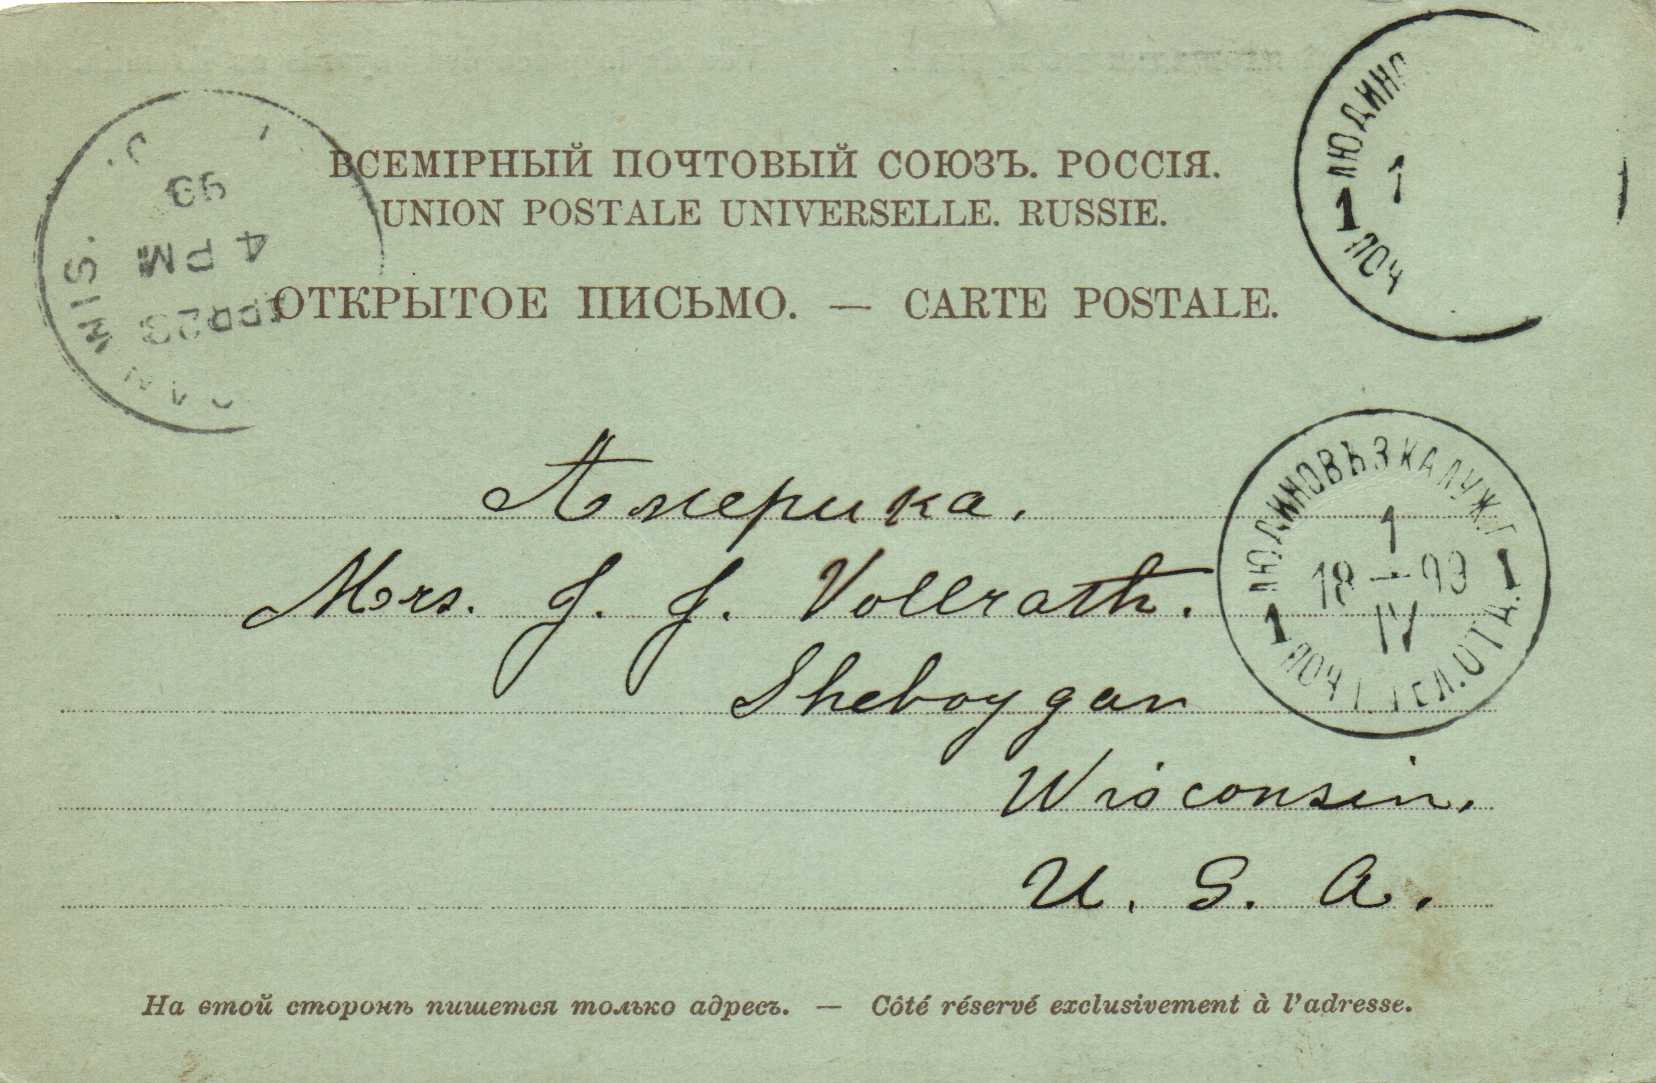 ВСЕМІРНЫЙ ПОЧТОВЫЙ СОЮЗЪ. РОССІЯ.
UNION POSTALE UNIVERSELLE. RUSSIE.
ОТКРЫТОЕ ПИСЬМО. — CARTE POSTALE.
ЛЮДИНО
1
1
ПОЧ
WIS.
4 PM
23
99
Америка.
Mrs. J. J. Vollrath.
Sheboygan
Wisconsin.
U. S. A.
ЛЮДИНОВЪЗ КАЛУЖ.Г
1
18 — 99
IV
1 1
ПОЧ Т ТЕЛ.ОТД.
На ѳтой сторонѣ пишется только адресъ. — Côté réservé exclusivement à l'adresse.